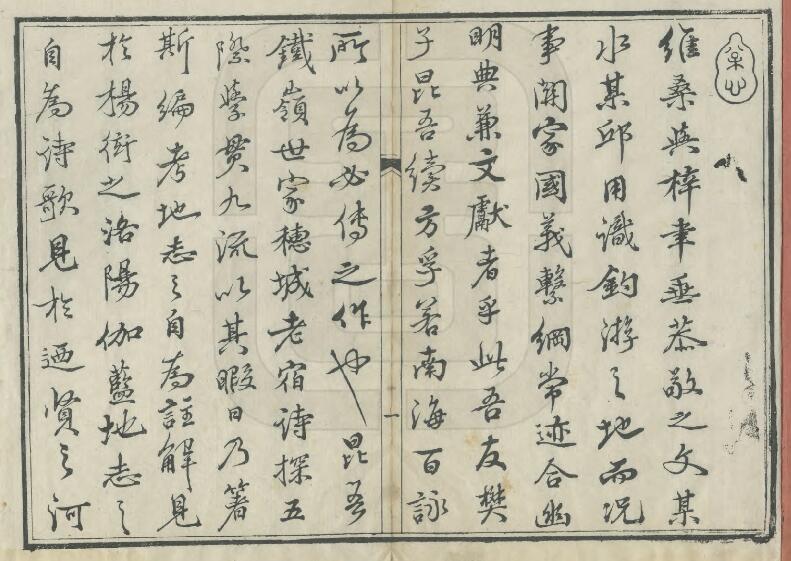 維桑與梓聿垂恭敬之文某
水某邱用識釣游之地而况
事關家國義繫綱常迹合幽
明典兼文獻者乎此吾友樊
子昆吾續方孚若南海百詠
所以為必傳之作也昆吾
鐵嶺世家穗城老宿詩探五
際學貫九流以其暇日乃著
斯編考地志之自為註解見
於楊衒之洛陽伽藍地志之
自為詩歌見於迺賢之河
一